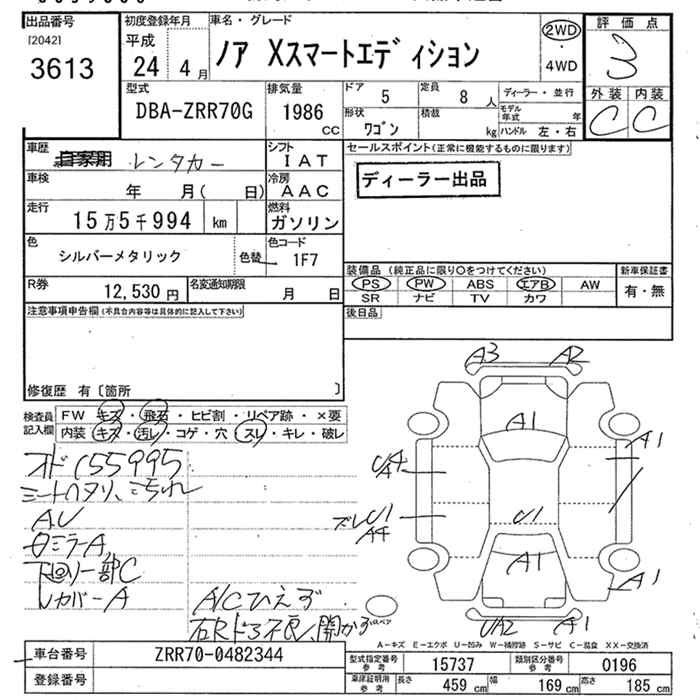 出品番号
[2042]
3613
初度登録年月
平成
24 4月
車名・グレード
ノア Xスマートエディション
2WD
・
4WD
評価点
3
外装 内装
C C
型式
DBA-ZRR70G
排気量
1986
CC
ドア 5
定員 8人
形状 ワゴン
積載 kg
ディーラー・並行
モデル年式 年
ハンドル 左・右
車歴
自家用 レンタカー
シフト
IAT
セールスポイント(正常に機能するものに限ります)
ディーラー出品
車検
年 月( 日)
冷房
AAC
走行
15万5千994 km
燃料
ガソリン
色
シルバーメタリック
色替
色コード
1F7
装備品 (純正品に限り○をつけてください)
新車保証書
PS PW ABS エアB AW
有・無
SR ナビ TV カワ
R券
12,530円
名変通知期限
月 日
後日品
注意事項申告欄(不具合内容等は具体的に記入して下さい)
修復歴 有〔箇所 〕
検査員
記入欄
FW キズ・飛石・ヒビ割・リペア跡・×要
内装 キズ・汚レ・コゲ・穴・スレ・キレ・破レ
オド155995
AU
ロミラーA
下回り一部C
レカバーA
A/Cひえず
右Rドア不良、開かず
A3 A2
A1
A1
A4
U1
A4
U1
A1
A1
UA2 A1
スペア
A-キズ E-エクボ U-凹み W-補修跡 S-サビ C-腐食 XX-交換済
車台番号
ZRR70-0482344
登録番号
型式指定番号
参考
15737
類別区分番号
参考
0196
車庫証明用
参考
長さ 459cm
幅 169cm
高さ 185cm